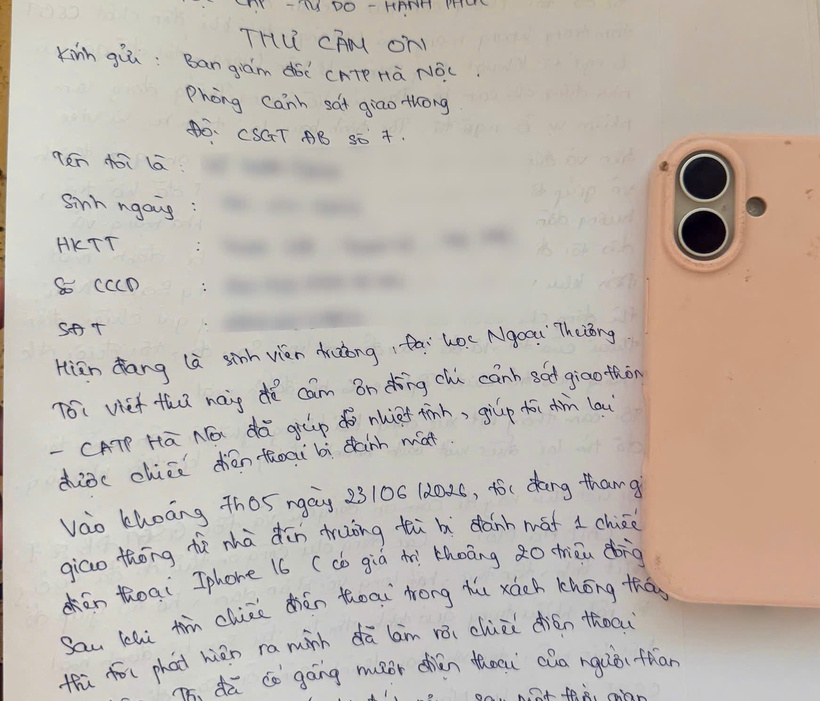 LẬP - TỰ DO - HẠNH PHÚC
THƯ CẢM ƠN
Kính gửi : Ban giám đốc CATP Hà Nộc .
Phòng Cảnh sát giao thông
Đội CSGT ĐB số 7.
Tên tôi là :
Sinh ngày :
HKTT :
Số CCCD :
SĐT :
Hiện đang là sinh viên trường, Đại học Ngoại Thương
Tôi viết thư này để cảm ơn đồng chí cảnh sát giao thôn
- CATP Hà Nội đã giúp đỡ nhiệt tình, giúp tôi tìm lại
được chiếc điện thoại bị đánh mất.
Vào khoảng 7h05 ngày 23/06/2026, tôi đang tham gi
giao thông từ nhà đến trường thì bị đánh mất 1 chiếc
điện thoại Iphone 16 (có giá trị khoảng 20 triệu đồng
Sau khi tìm chiếc điện thoại trong túi xách không thấy
thì tôi phát hiện ra mình đã làm rơi chiếc điện thoại
Tôi đã cố gắng mượn điện thoại của người thân
sau một thời gian